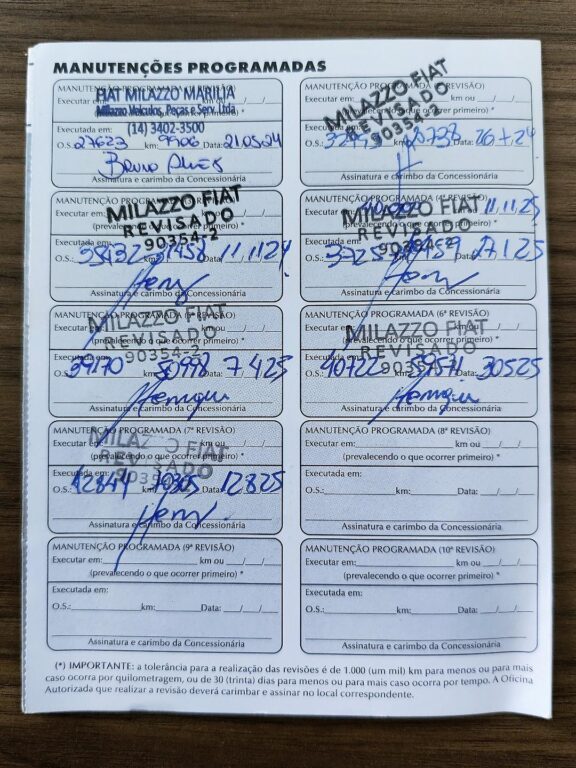 MANUTENÇÕES PROGRAMADAS
FIAT MILAZZO MARILIA
Milazzo Veículos, Peças e Serv. Ltda
(14) 3402-3500
Executada em:
O.S.: 27623 km: 9906 Data: 21.05.24
Bruno Alves
Assinatura e carimbo da Concessionária
Executar em: km ou
MILAZZO FIAT
REVISADO
90354-2
26.7.24
Assinatura e carimbo da Concessionária
MANUTENÇÃO PROGRAMADA
Executar em:
MILAZZO FIAT
REVISADO
90354-2
(prevalecendo o que ocorrer primeiro) *
Executada em:
O.S.: Data: 11.11.24
Assinatura e carimbo da Concessionária
MANUTENÇÃO PROGRAMADA
Executar em: 11.11.25
MILAZZO FIAT
REVISADO
Executada em:
O.S.: Data: 27.1.25
Assinatura e carimbo da Concessionária
MANUTENÇÃO PROGRAMADA
Executar em:
MILAZZO FIAT
REVISADO
90354-2
(prevalecendo o que ocorrer primeiro) *
Executada em:
O.S.: 39170 km: 50998 Data: 7.4.25
Henrique
Assinatura e carimbo da Concessionária
MANUTENÇÃO PROGRAMADA (6ª REVISÃO)
Executar em: km ou
MILAZZO FIAT
REVISADO
(prevalecendo o que ocorrer primeiro) *
Executada em:
O.S.: 40722 km: 59571 Data: 30525
Henrique
Assinatura e carimbo da Concessionária
MANUTENÇÃO PROGRAMADA (7ª REVISÃO)
Executar em: km ou
MILAZZO FIAT
REVISADO
(prevalecendo o que ocorrer primeiro) *
Executada em:
O.S.: 42844 km: 70305 Data: 12825
Assinatura e carimbo da Concessionária
MANUTENÇÃO PROGRAMADA (8ª REVISÃO)
Executar em: km ou / /
(prevalecendo o que ocorrer primeiro) *
Executada em:
O.S.: km: Data: / /
Assinatura e carimbo da Concessionária
MANUTENÇÃO PROGRAMADA (9ª REVISÃO)
Executar em: km ou / /
(prevalecendo o que ocorrer primeiro) *
Executada em:
O.S.: km: Data: / /
Assinatura e carimbo da Concessionária
MANUTENÇÃO PROGRAMADA (10ª REVISÃO)
Executar em: km ou / /
(prevalecendo o que ocorrer primeiro) *
Executada em:
O.S.: km: Data: / /
Assinatura e carimbo da Concessionária
(*) IMPORTANTE: a tolerância para a realização das revisões é de 1.000 (um mil) km para menos ou para mais
caso ocorra por quilometragem, ou de 30 (trinta) dias para menos ou para mais caso ocorra por tempo. A Oficina
Autorizada que realizar a revisão deverá carimbar e assinar no local correspondente.